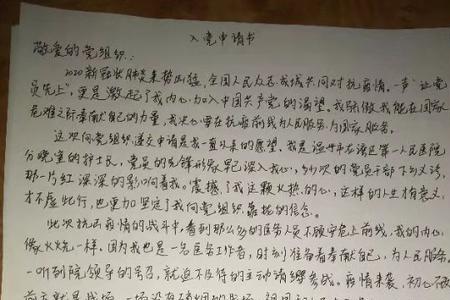 入党申请书
敬爱的党组织:
2020新冠状肺炎来势凶猛,全国人民众志成城共同对抗疫情。一声“让党
员先上”,更是激起了我内心加入中国共产党的渴望。我骄傲我能在国家
危难之际奉献自己的力量,我决心要在抗疫前线为人民服务,为国家服务。
这次向党组织递交申请是我一直以来的愿望,我是温州市龙湾区第一人民医院
分晚室的护士长,党员的先锋形象早已深入我心,多少次的党员干部下乡义诊,
那一片红深深的影响着我。震撼了我这颗火热的心,这样的人生才有意义,
才不虚此行,也更加坚定了我向党组织靠拢的信念。
此次抗击疫情的战斗中,看到那么多的医务人员不顾安危上前线,我的内心
像火烧一样,因为我也是一名医务工作者,时刻准备着奉献自己,为人民服务。
一听到院领导的号召,就迫不及待的主动请缨参战。疫情来袭,初心不改
前方就是战场,一场没有硝烟的战场